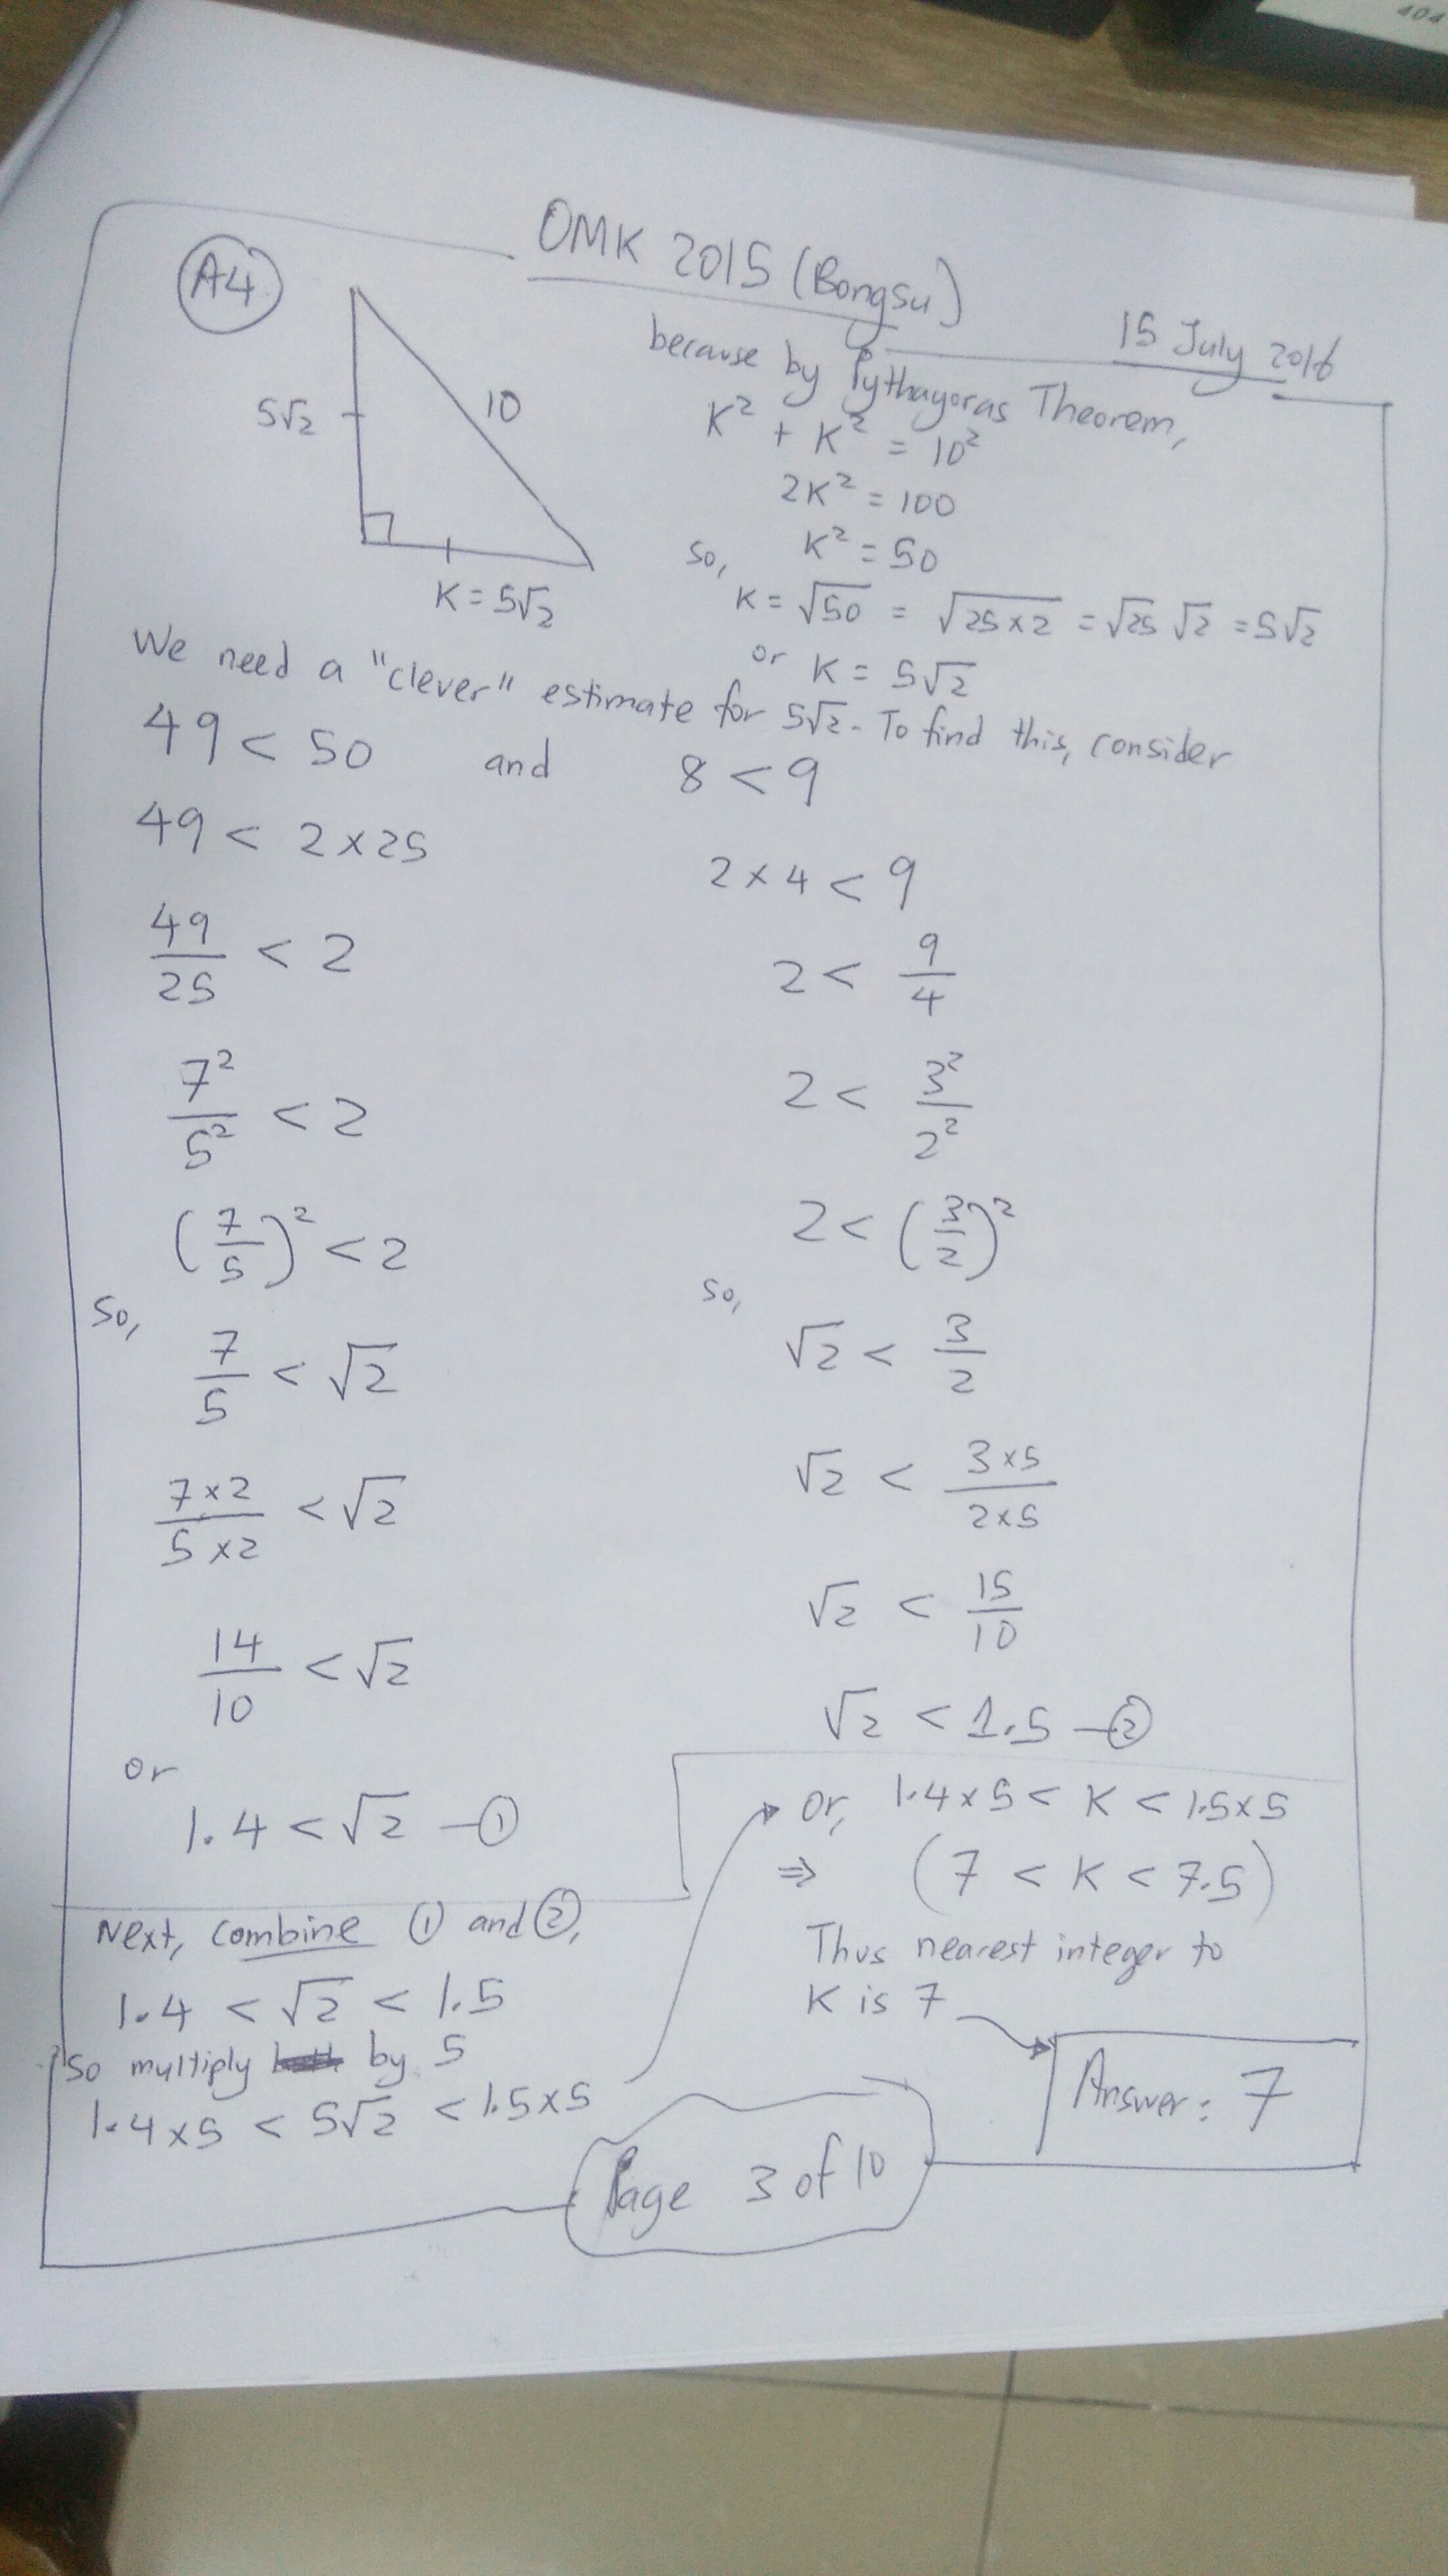 404
OMK 2015 (Bongsu)
15 July 2016
A4
5√2
10
K = 5√2
because by Pythagoras Theorem,
K² + K² = 10²
2K² = 100
so, K² = 50
K = √50 = √25×2 = √25 √2 = 5√2
or K = 5√2
We need a "clever" estimate for 5√2. To find this, consider
49 < 50 and 8 < 9
49 < 2×25
49/25 < 2
7²/5² < 2
(7/5)² < 2
so,
7/5 < √2
7×2/5×2 < √2
14/10 < √2
or
1.4 < √2 —①
2×4 < 9
2 < 9/4
2 < 3²/2²
2 < (3/2)²
so,
√2 < 3/2
√2 < 3×5/2×5
√2 < 15/10
√2 < 1.5 —②
Next, combine ① and ②,
1.4 < √2 < 1.5
so multiply by 5
1.4×5 < 5√2 < 1.5×5
or, 1.4×5 < K < 1.5×5
⇒ (7 < K < 7.5)
Thus nearest integer to
K is 7
Answer: 7
Page 3 of 10